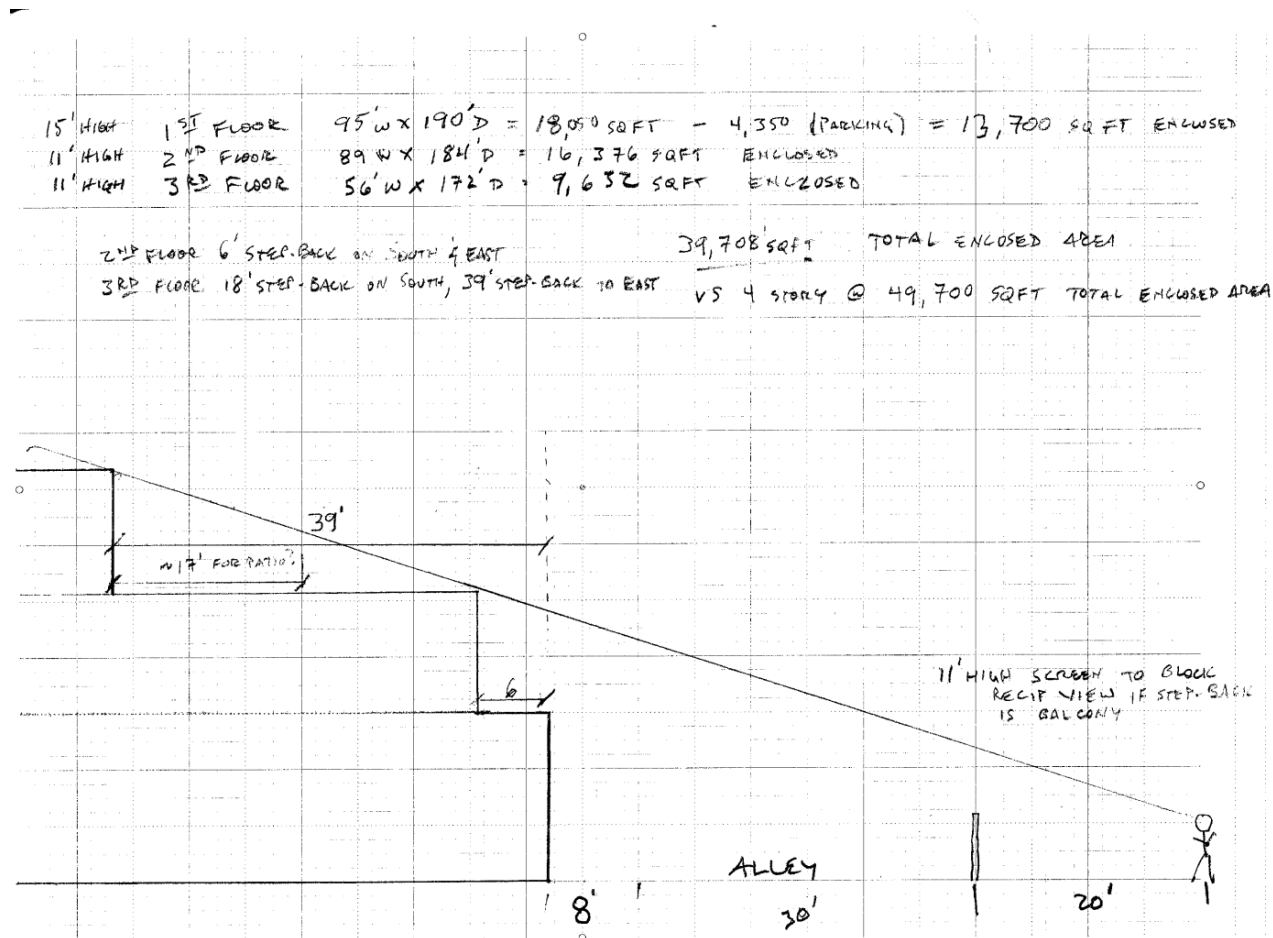 15' HIGH 1ST FLOOR 95'W X 190'D = 18,050 SQFT - 4,350 (PARKING) = 13,700 SQ FT ENCLOSED
11' HIGH 2ND FLOOR 89 W X 184'D = 16,376 SQFT ENCLOSED
11' HIGH 3RD FLOOR 56'W X 172'D = 9,632 SQFT ENCLOSED
2ND FLOOR 6' STEP-BACK ON SOUTH & EAST
39,708 SQFT TOTAL ENCLOSED AREA
3RD FLOOR 18' STEP-BACK ON SOUTH, 39' STEP-BACK TO EAST
VS 4 STORY @ 49,700 SQFT TOTAL ENCLOSED AREA
39'
~17' FOR PATIO?
6
11' HIGH SCREEN TO BLOCK
RECIP VIEW IF STEP-BACK
IS BALCONY
ALLEY
8'
30'
20'